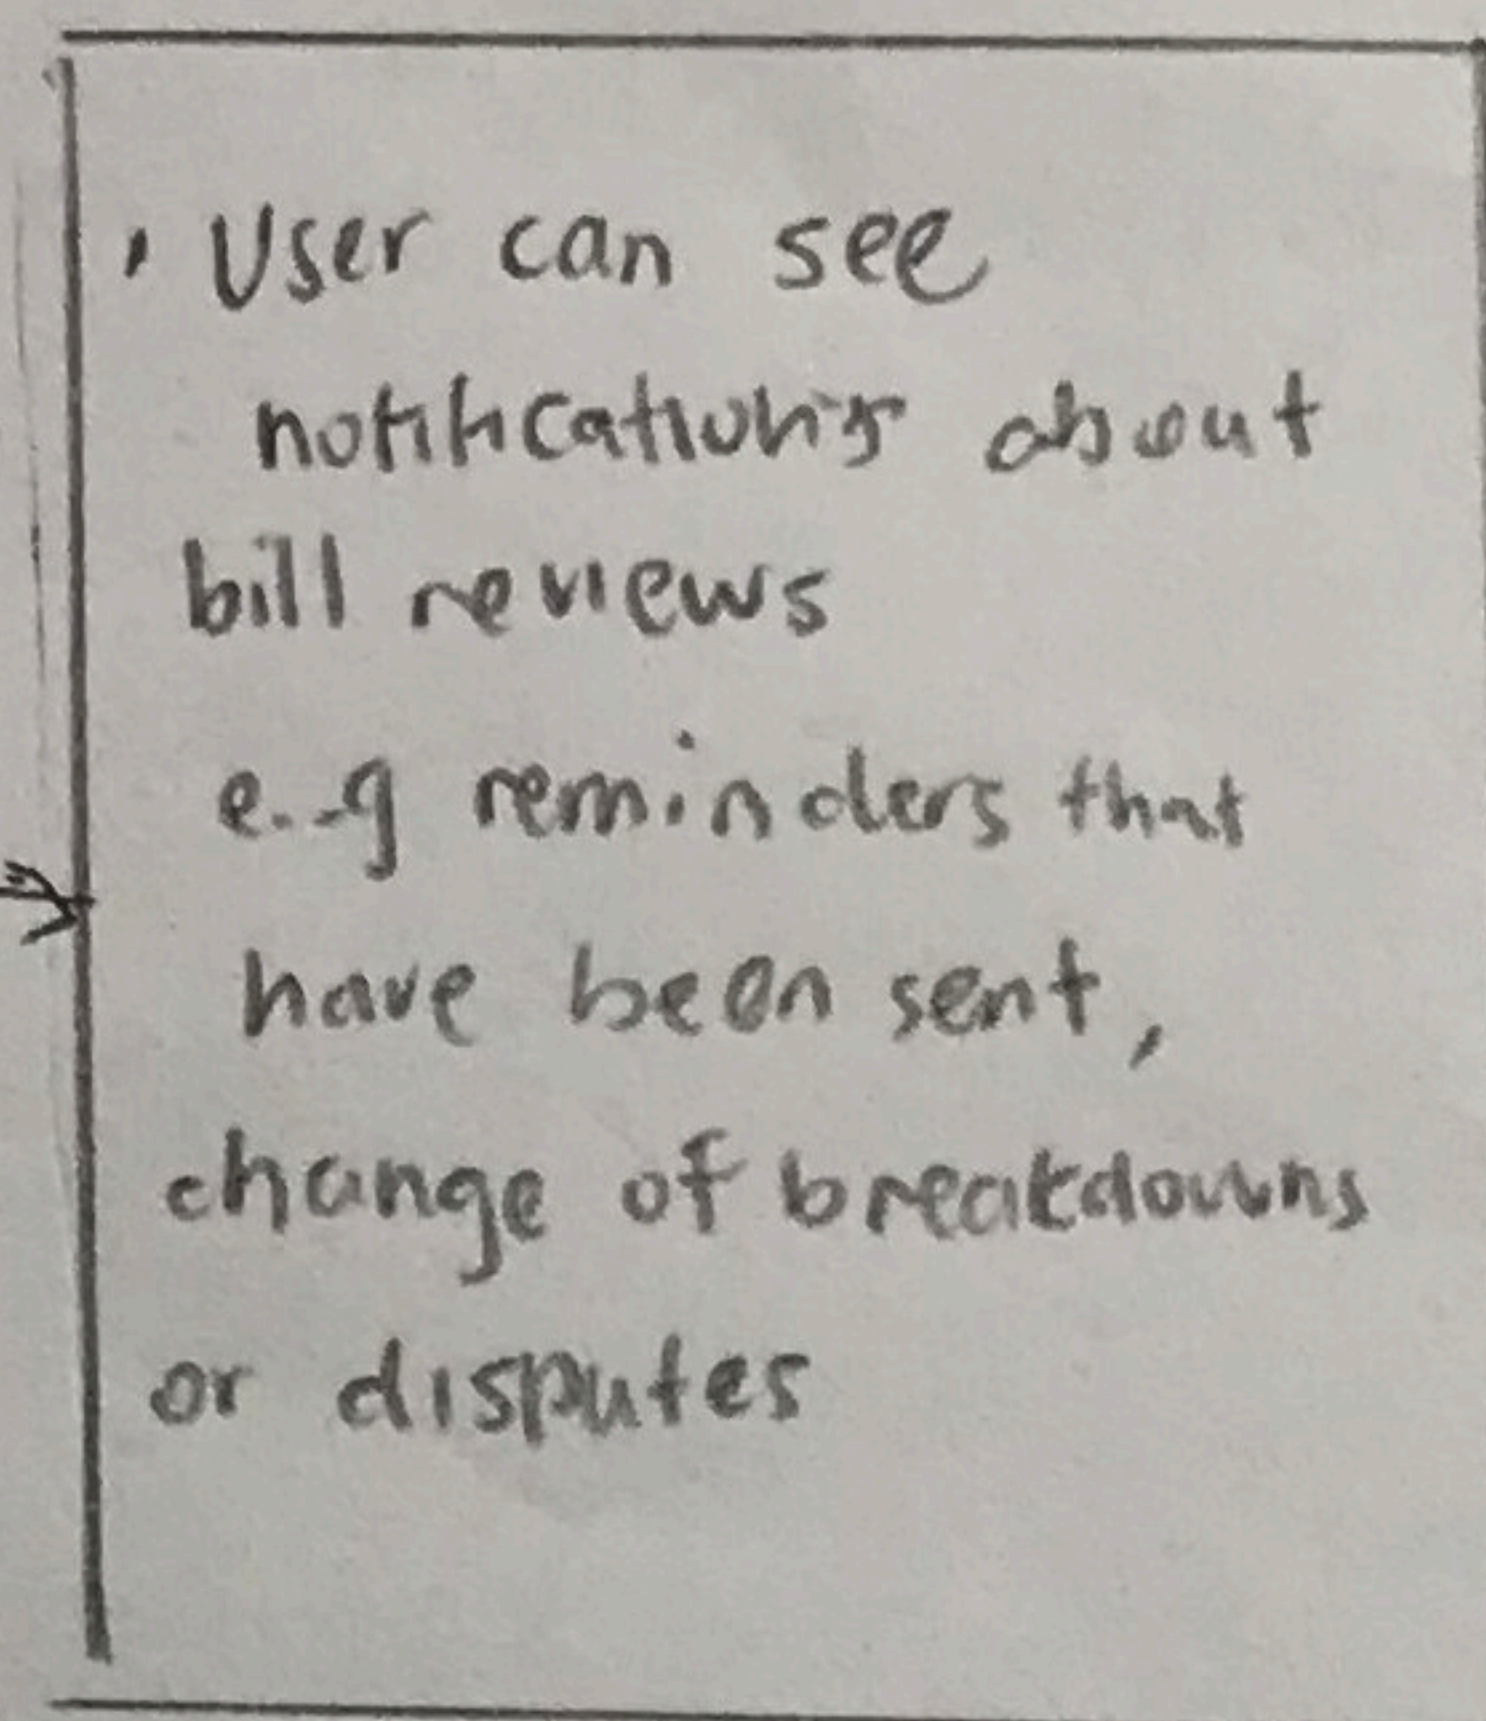 • User can see
notifications about
bill reviews
e.g reminders that
have been sent,
change of breakdowns
or disputes